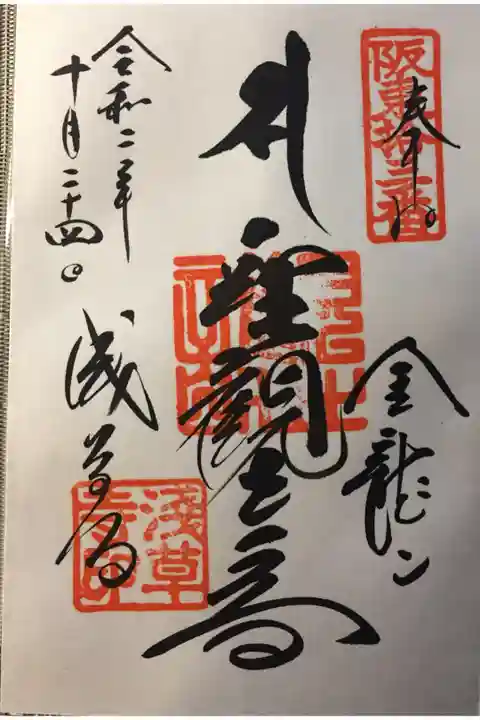 奉拝
阪東拾三番
金龍山
聖観世音
令和二年
十月二十四日
浅草寺
浅草寺印